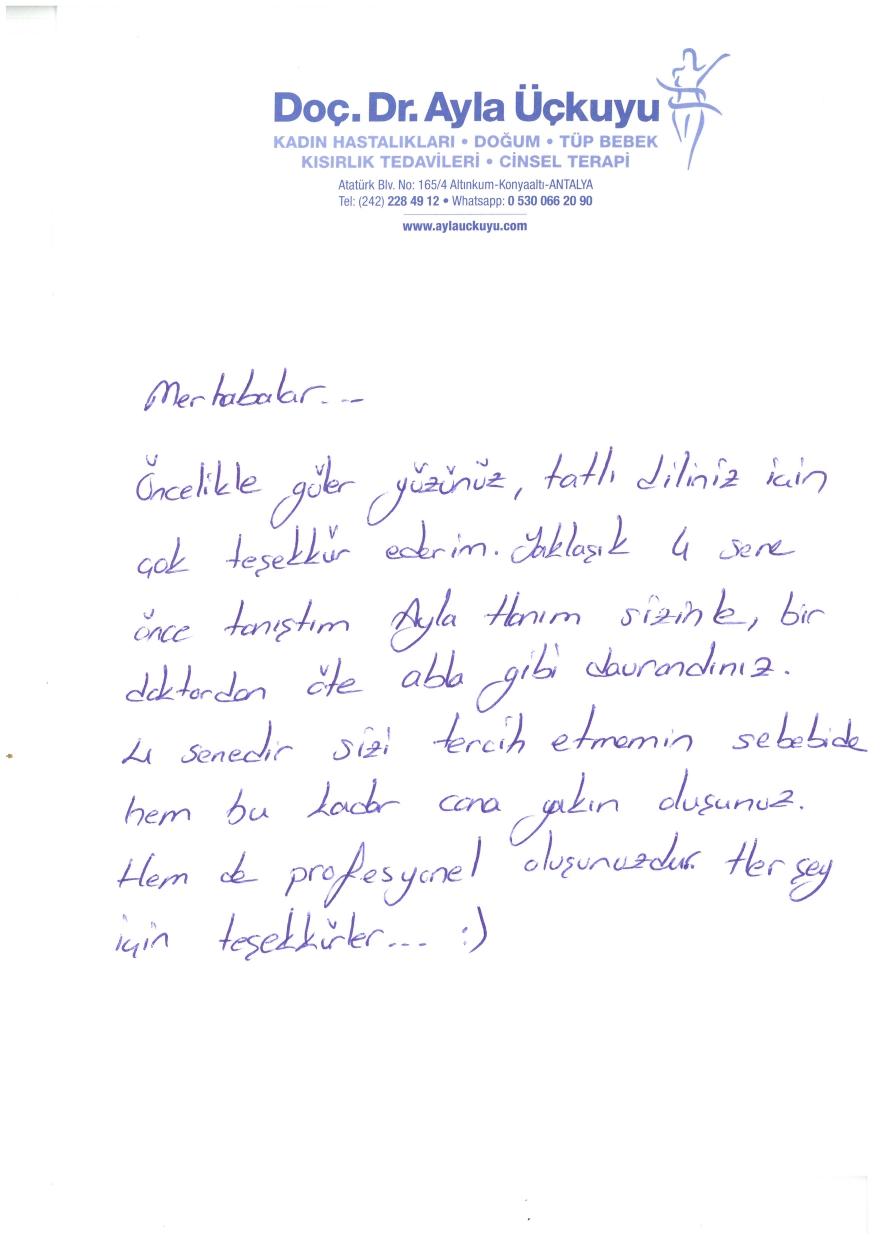 Doç. Dr. Ayla Üçkuyu
KADIN HASTALIKLARI • DOĞUM • TÜP BEBEK
KISIRLIK TEDAVİLERİ • CİNSEL TERAPİ
Atatürk Blv. No: 165/4 Altınkum-Konyaaltı-ANTALYA
Tel: (242) 228 49 12 • Whatsapp: 0 530 066 20 90
www.aylauckuyu.com
Merhabalar...
Öncelikle güler yüzünüz, tatlı diliniz için
çok teşekkür ederim. Yaklaşık 4 sene
önce tanıştım Ayla Hanım sizinle, bir
doktordan öte abla gibi davrandınız.
4 senedir sizi tercih etmemin sebebide
hem bu kadar cana yakın oluşunuz.
Hem de profesyonel oluşunuzdur. Her şey
için teşekkürler... :)